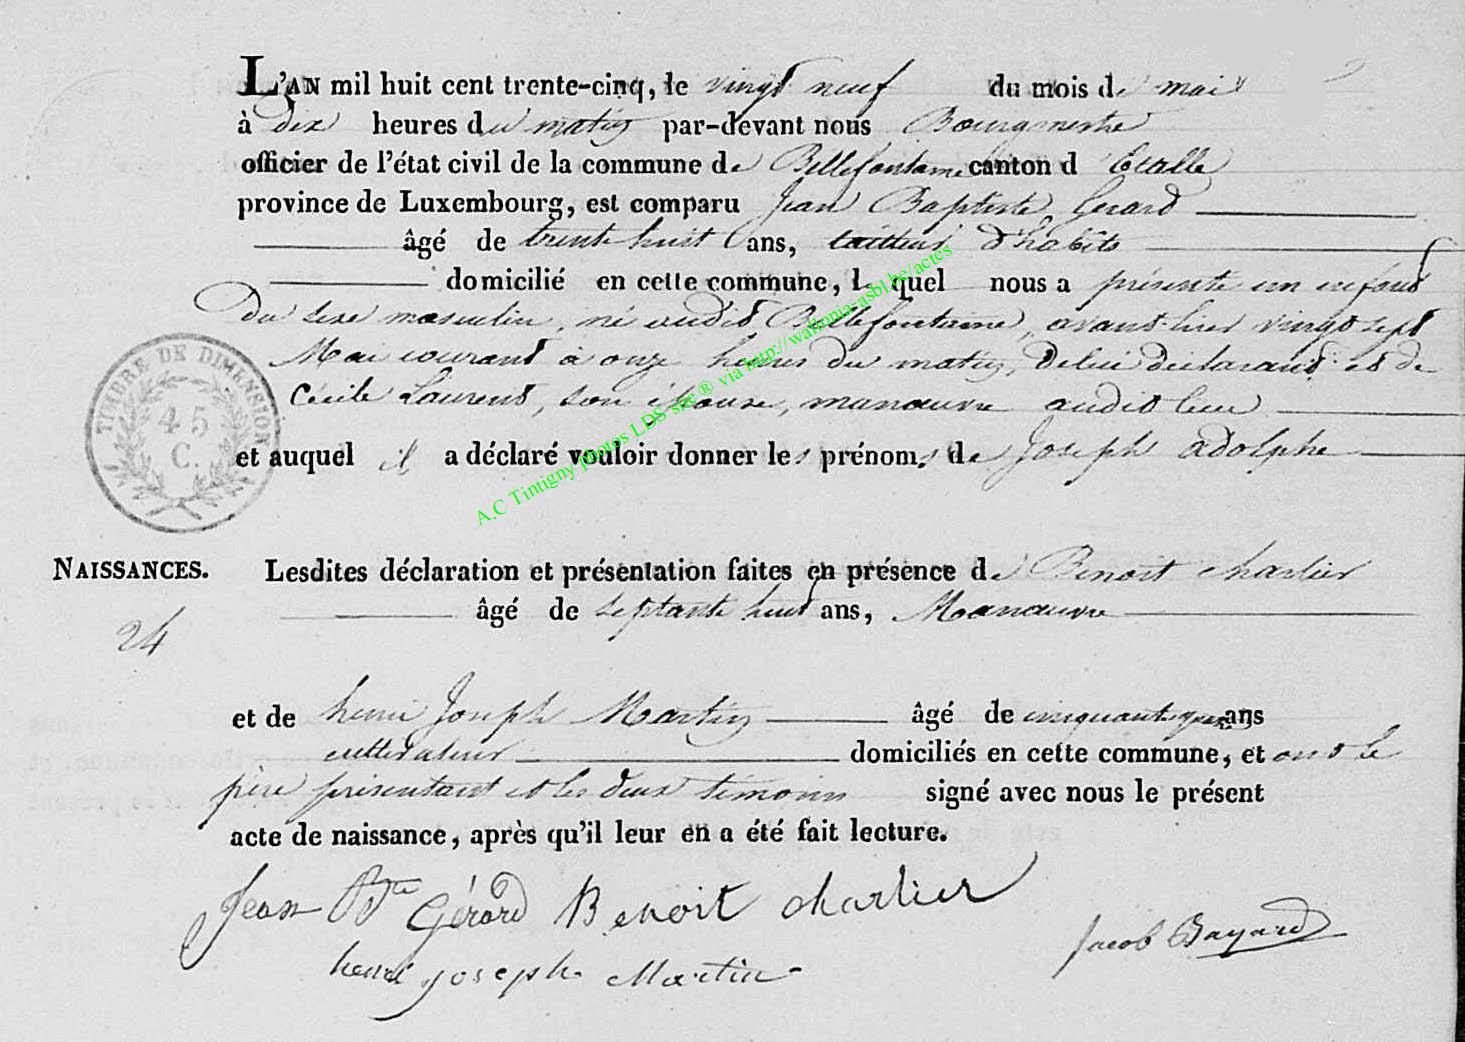 L'AN mil huit cent trente-cinq, le vingt neuf du mois de mai
à dix heures du matin par-devant nous Bourgmestre
officier de l'état civil de la commune de Bellefontaine canton d'Etalle
province de Luxembourg, est comparu Jean Baptiste Gerard
âgé de trente huit ans, tailleur d'habits
domicilié en cette commune, lequel nous a présenté un enfant
du sexe masculin, né audit Bellefontaine, avant hier vingt sept
Mai courant à onze heures du matin, de lui déclarant et de
Cécile Laurent, son épouse, manœuvre audit lieu
et auquel il a déclaré vouloir donner les prénoms de Joseph adolphe
TIMBRE DE DIMENSION
45
C.
A.C Tintigny photos LDS site® via http://wallonia-asbl.be/actes
NAISSANCES.
24
Lesdites déclaration et présentation faites en présence de Benoit charlier
âgé de septante huit ans, Manœuvre
et de henri Joseph Martin âgé de ans
cultivateur domiciliés en cette commune, et ont le
père présentant et les deux témoins signé avec nous le présent
acte de naissance, après qu'il leur en a été fait lecture.
Jean Bte Gérard Benoit charlier
henri joseph Martin
Jacob Bayard